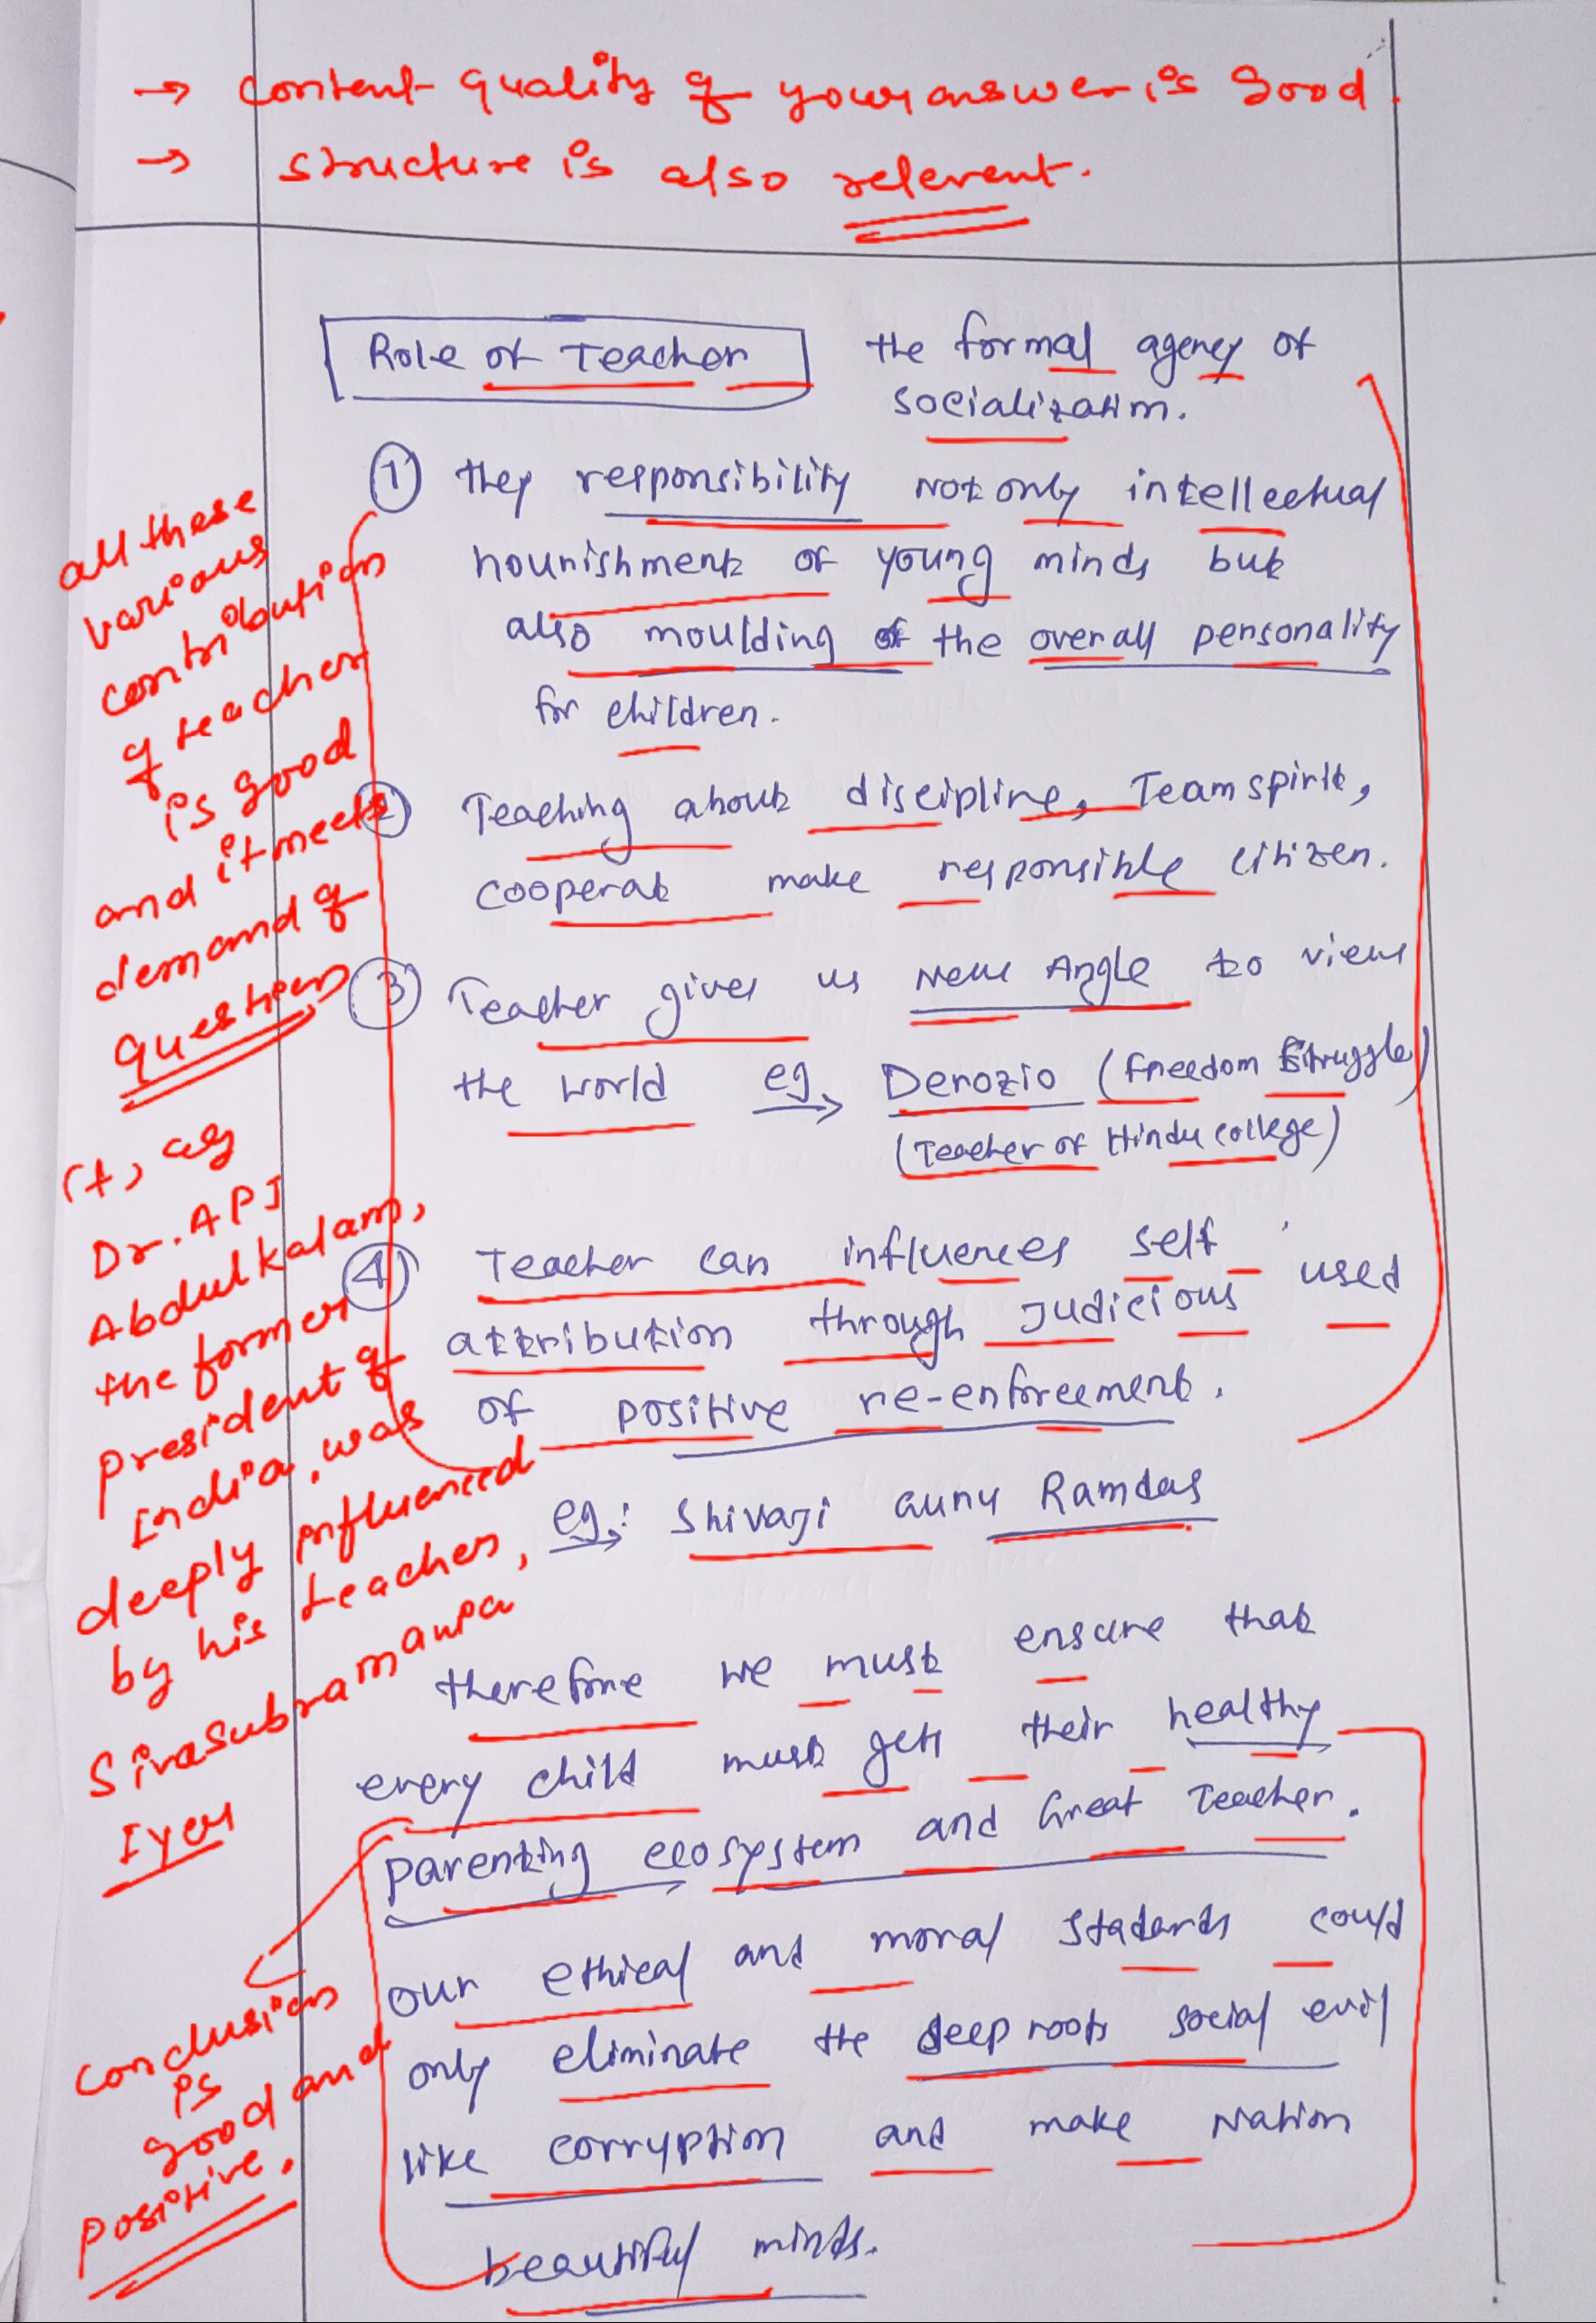 → content quality of your answer is good.
→ structure is also relevent.
Role of Teacher
the formal agency of
socialization.
① they responsibility not only intellectual
nourishment of young minds but
also moulding of the overall personality
for children.
② Teaching about discipline, Team spirit,
cooperat make responsible citizen.
③ Teacher gives us new Angle to view
the world eg → Derozio (freedom struggle)
(Teacher of Hindu college)
④ Teacher can influences self
attribution through judicious used
of positive re-enforcement.
eg: Shivaji guru Ramdas
therefore we must ensure that
every child must gets their healthy
parenting ecosystem and Great Teacher.
our ethical and moral stadards could
only eliminate the deep roots social evil
like corryption and make Nation
beautiful minds.
all these
various
contribution
of teacher
is good
and it meets
demand of
question
Dr. APJ
Abdul kalam,
the former
president of
India, was
deeply influenced
by his teacher,
Sivasubramanya
Iyer
conclusion
is
good and
positive.